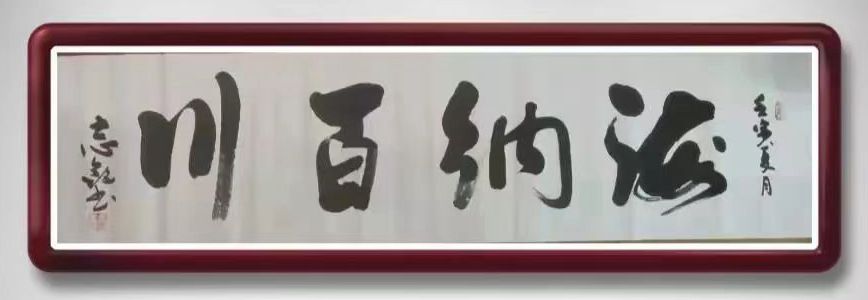 壬寅夏月
海纳百川
志
书